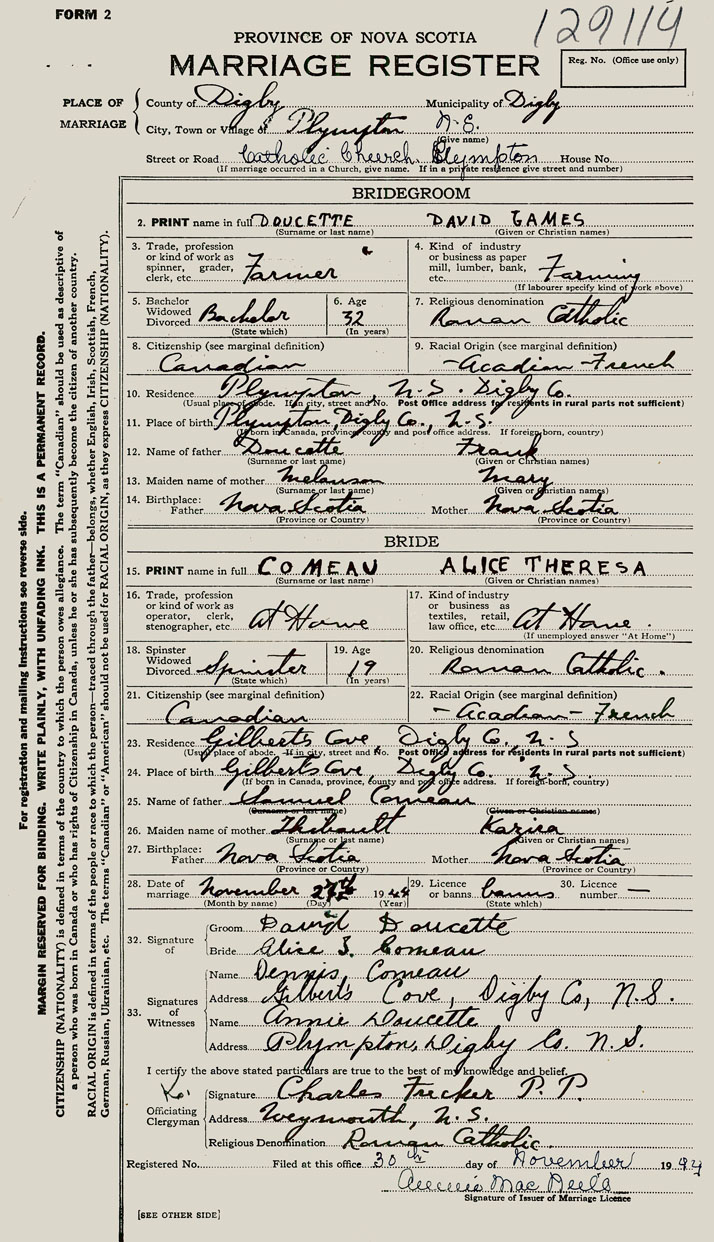 FORM 2
129114
PROVINCE OF NOVA SCOTIA
MARRIAGE REGISTER
Reg. No. (Office use only)
PLACE OF MARRIAGE
County of Digby Municipality of Digby
City, Town or Village of Plympton N.S.
(Give name)
Street or Road Catholic Church, Plympton House No.
(If marriage occurred in a Church, give name. If in a private residence give street and number)
BRIDEGROOM
2. PRINT name in full DOUCETTE DAVID JAMES
(Surname or last name) (Given or Christian names)
3. Trade, profession or kind of work as spinner, grader, clerk, etc. Farmer
4. Kind of industry or business as paper mill, lumber, bank, etc. Farming
(If labourer specify kind of work above)
5. Bachelor Widowed Divorced Bachelor
(State which)
6. Age 32
(In years)
7. Religious denomination
Roman Catholic
8. Citizenship (see marginal definition)
Canadian
9. Racial Origin (see marginal definition)
-Acadian-French
10. Residence Plympton, N.S. Digby Co.
(Usual place of abode. If in city, street and No. Post Office address for residents in rural parts not sufficient)
11. Place of birth Plympton, Digby Co., N.S.
(If born in Canada, province, county and post office address. If foreign born, country)
12. Name of father Doucette Frank
(Surname or last name) (Given or Christian names)
13. Maiden name of mother Melanson Mary
(Surname or last name) (Given or Christian names)
14. Birthplace: Father Nova Scotia Mother Nova Scotia
(Province or Country) (Province or Country)
BRIDE
15. PRINT name in full COMEAU ALICE THERESA
(Surname or last name) (Given or Christian names)
16. Trade, profession or kind of work as operator, clerk, stenographer, etc. At Home
17. Kind of industry or business as textiles, retail, law office, etc. At Home.
(If unemployed answer "At Home")
18. Spinster Widowed Divorced Spinster
(State which)
19. Age 19
(In years)
20. Religious denomination
Roman Catholic.
21. Citizenship (see marginal definition)
Canadian
22. Racial Origin (see marginal definition)
-Acadian-French
23. Residence Gilberts Cove, Digby Co. N.S
(Usual place of abode. If in city, street and No. Post Office address for residents in rural parts not sufficient)
24. Place of birth Gilberts Cove, Digby Co. N.S.
(If born in Canada, province, county and post office address. If foreign-born, country)
25. Name of father Samuel Comeau
(Surname or last name) (Given or Christian names)
26. Maiden name of mother Thibault Kazira
(Surname or last name) (Given or Christian names)
27. Birthplace: Father Nova Scotia Mother Nova Scotia
(Province or Country) (Province or Country)
28. Date of marriage November 27th 1944
(Month by name) (Day) (Year)
29. Licence or banns banns
(State which)
30. Licence number —
32. Signature of
Groom David Doucette
Bride Alice T. Comeau
33. Signatures of Witnesses
Name Dennis Comeau
Address Gilbert's Cove, Digby Co, N.S.
Name Annie Doucette
Address Plympton, Digby Co. N.S.
I certify the above stated particulars are true to the best of my knowledge and belief.
Officiating Clergyman
Signature Charles Frecker P.P.
Address Weymouth, N.S.
Religious Denomination Roman Catholic.
Registered No. Filed at this office 30th day of November 1944
Signature of Issuer of Marriage Licence
[SEE OTHER SIDE]
For registration and mailing instructions see reverse side.
MARGIN RESERVED FOR BINDING. WRITE PLAINLY, WITH UNFADING INK. THIS IS A PERMANENT RECORD.
CITIZENSHIP (NATIONALITY) is defined in terms of the country to which the person owes allegiance. The term "Canadian" should be used as descriptive of
a person who was born in Canada or who has rights of Citizenship in Canada, unless he or she has subsequently become the citizen of another country.
RACIAL ORIGIN is defined in terms of the people or race to which the person—traced through the father—belongs, whether English, Irish, Scottish, French,
German, Russian, Ukrainian, etc. The terms "Canadian" or "American" should not be used for RACIAL ORIGIN, as they express CITIZENSHIP (NATIONALITY).